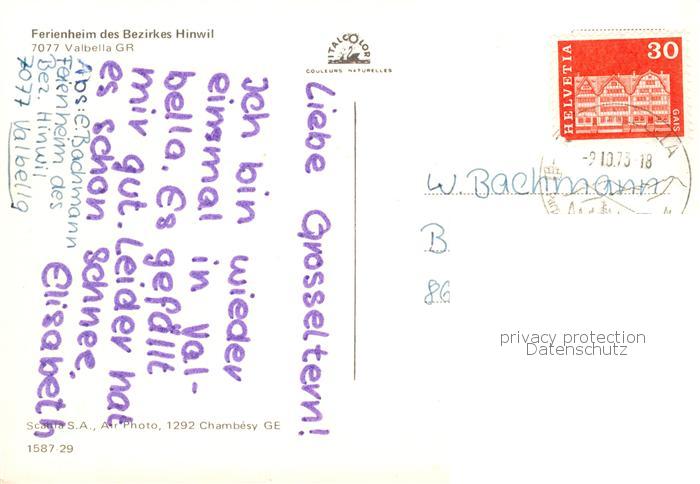 Ferienheim des Bezirkes Hinwil
7077 Valbella GR
ITALCOLOR
COULEURS NATURELLES
HELVETIA
30
GAIS
-9.10.73-18
Liebe Grosseltern!
Ich bin wieder
einmal in Val-
bella. Es gefällt
mir gut. Leider hat
es schon schnee.
Elisabeth
Abs: E. Bachmann
Ferienheim des
Bez. Hinwil
7077 Valbella
W. Bachmann
B
86
privacy protection
Datenschutz
Scania S.A., Air Photo, 1292 Chambésy GE
1587-29